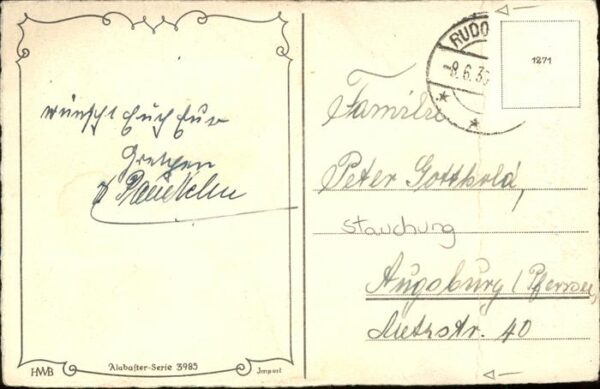 wünscht Euch Eure
Gretchen
HWB
Alabaster-Serie 3985
Import
RUDO
-8.6.3
1271
Familie
Peter Gotthold,
Stauchung
Augsburg / Pfersee,
40